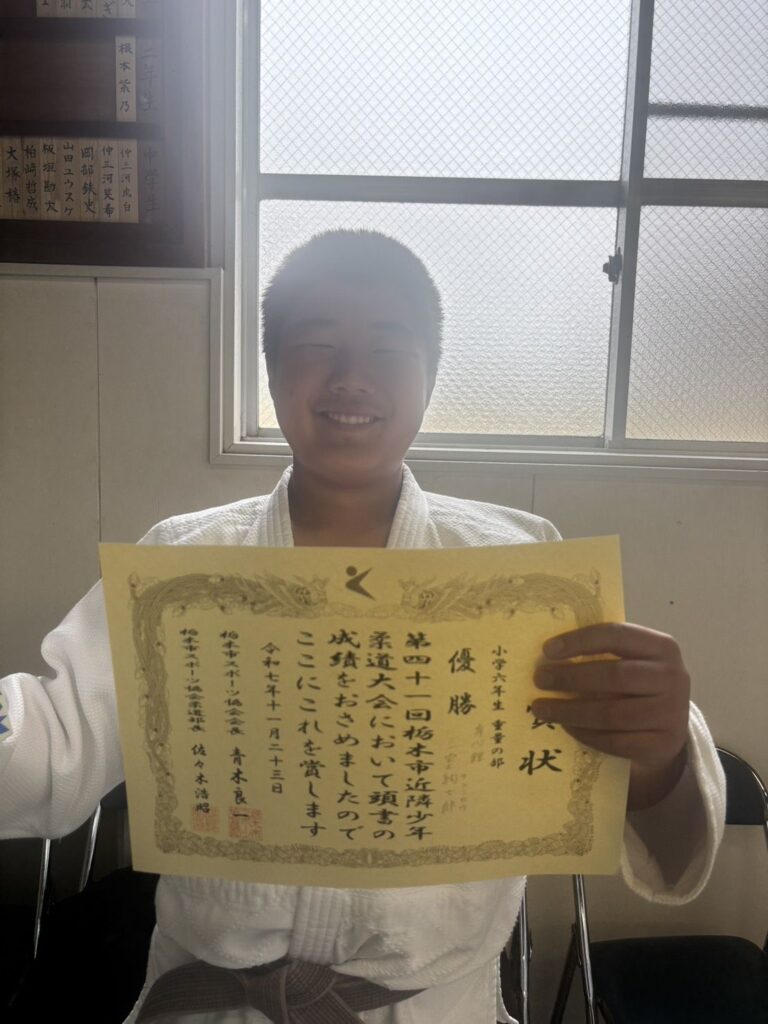 二年生
根本紫乃
中学生
仲三河虎白
仲三河癸希
岡部鉄史
山田ユウスケ
板垣勘穴
柏崎哲成
大塚椿
賞状
小学六年生 重量の部
優勝
第四十一回栃木市近隣少年
柔道大会において頭書の
成績をおさめましたので
ここにこれを賞します
令和七年十一月二十三日
栃木市スポーツ協会会長 青木良一
栃木市スポーツ協会柔道部長 佐々木浩昭